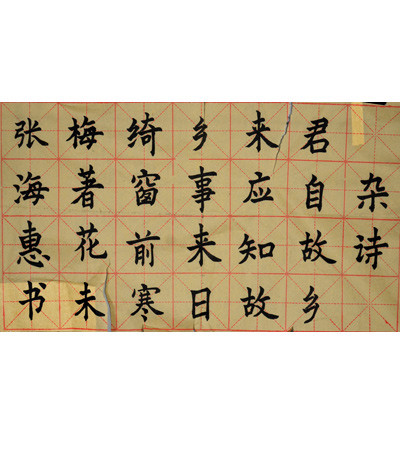 杂诗
君自故乡
来应知故
乡事来日
绮窗前寒
梅著花未
张海惠书